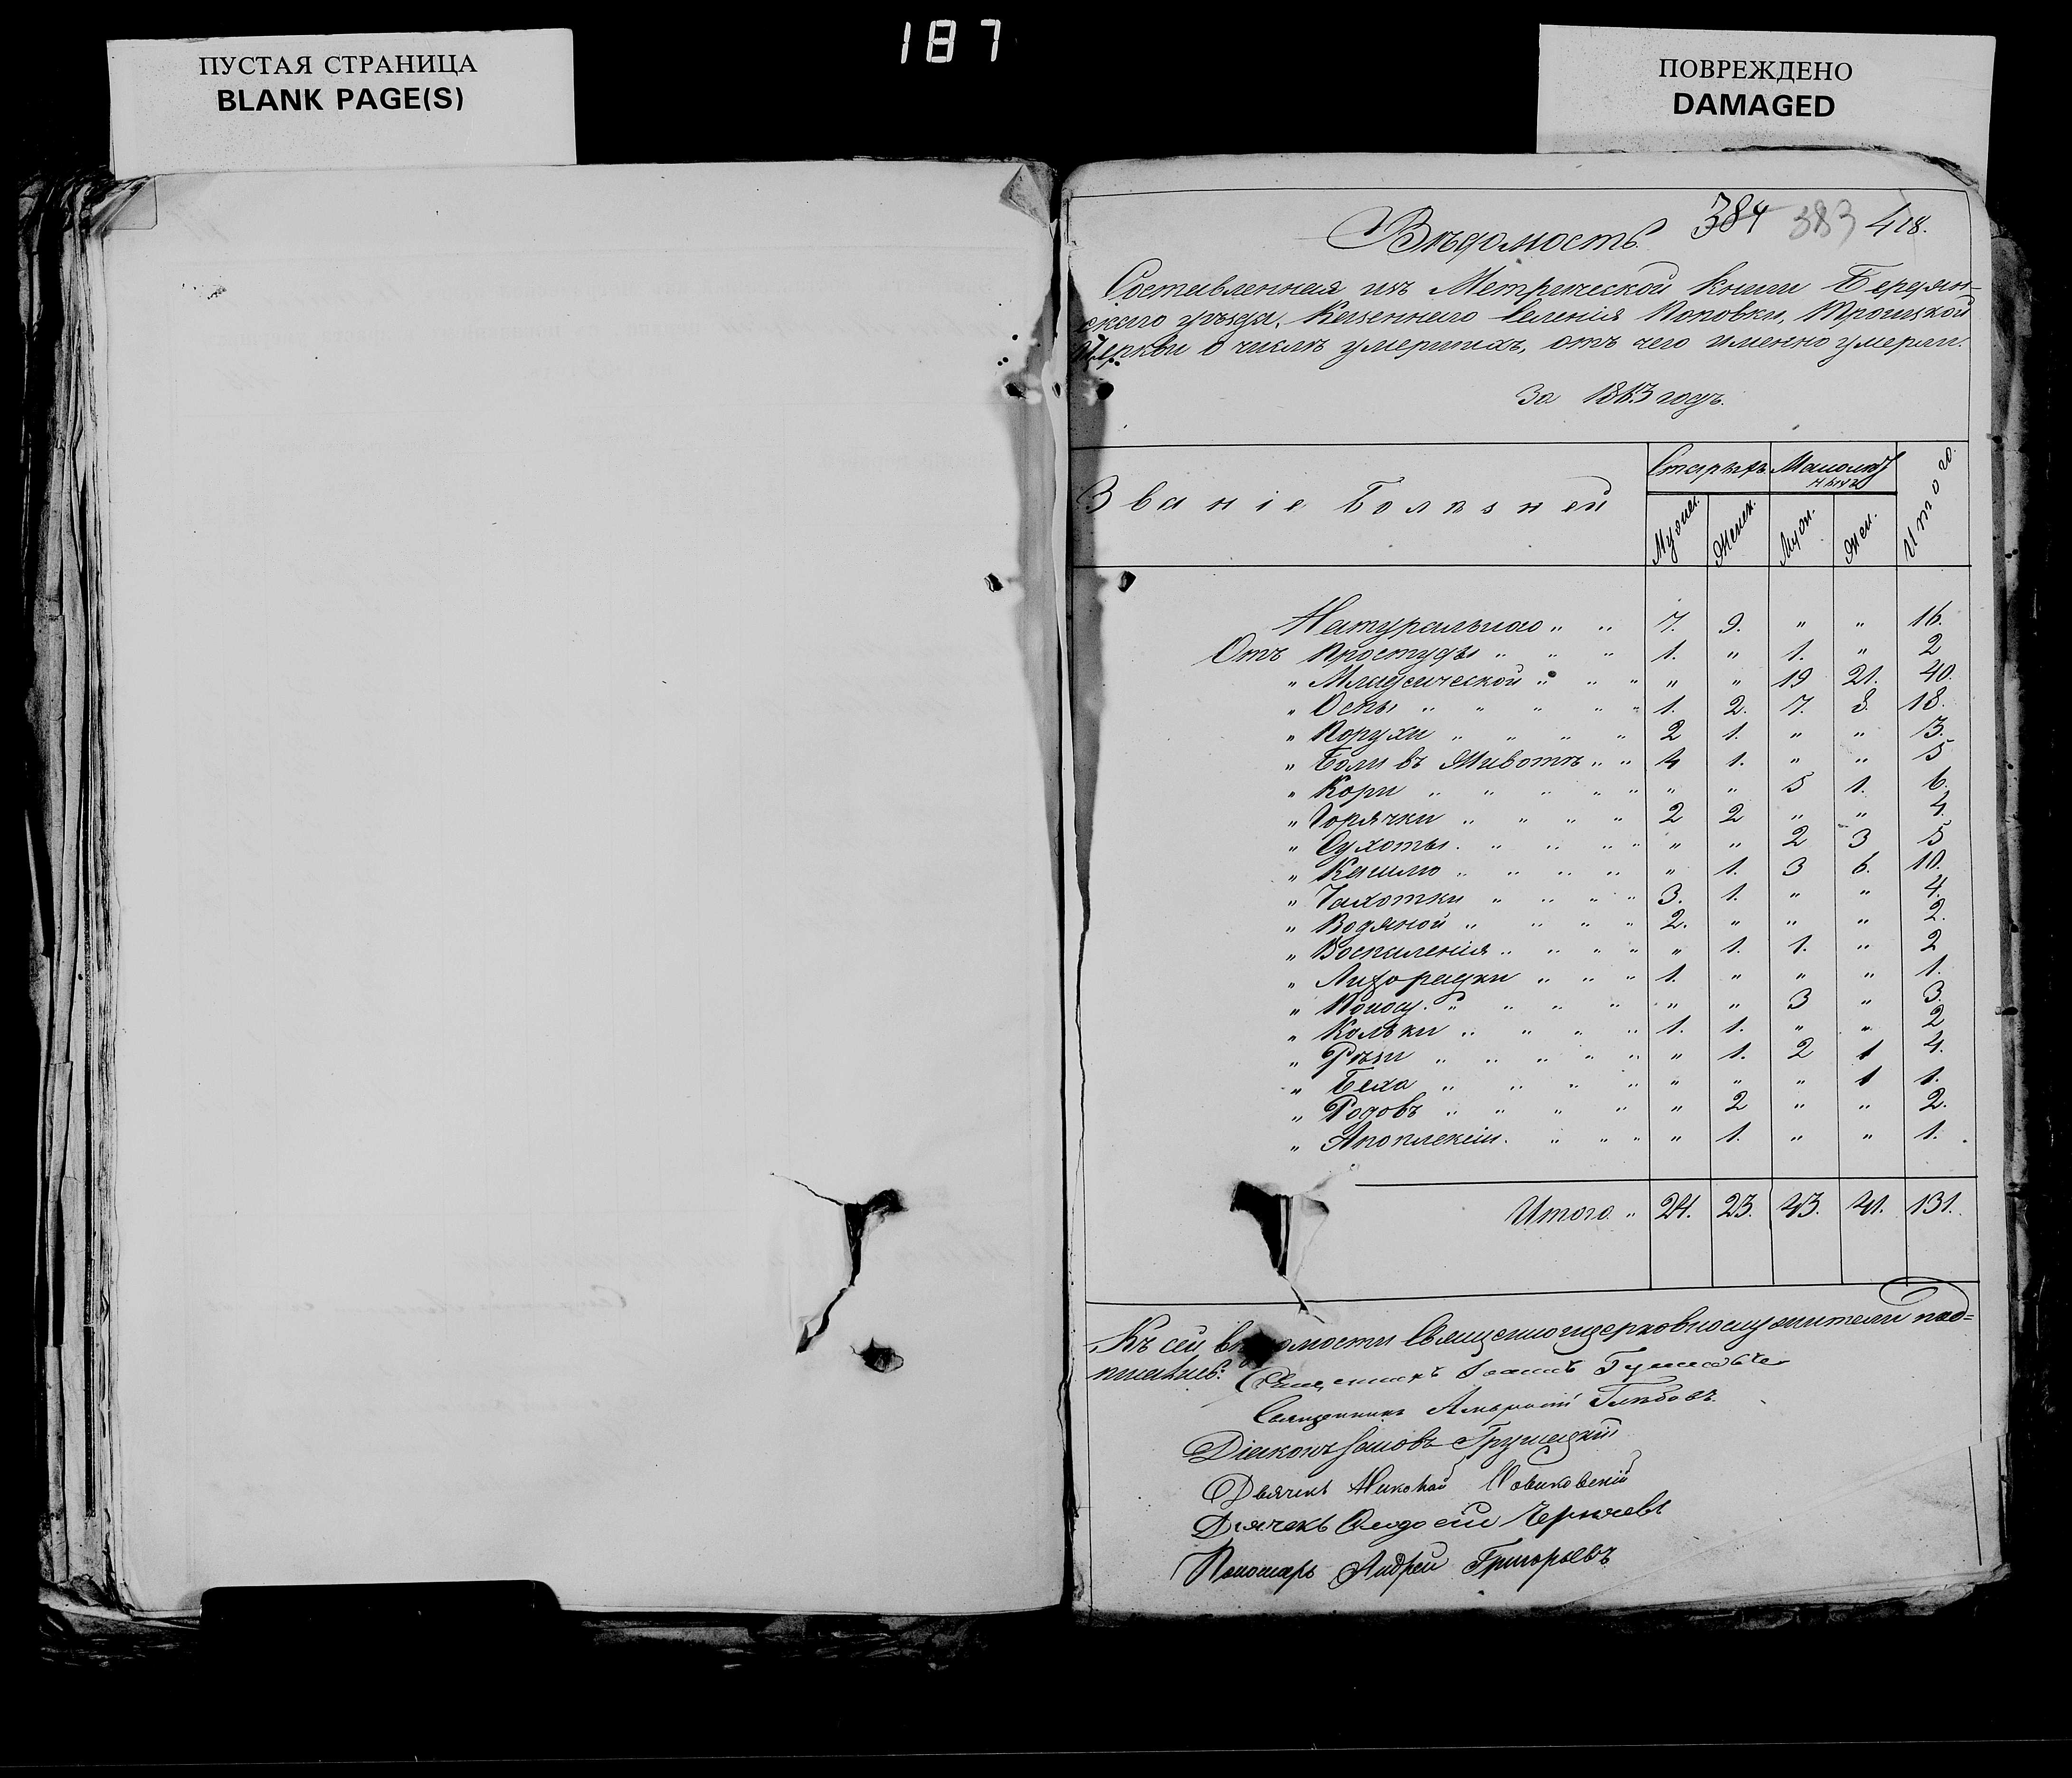 187
ПУСТАЯ СТРАНИЦА
BLANK PAGE(S)
ПОВРЕЖДЕНО
DAMAGED
Вѣдомость. 384 383 418.
Составленная изъ Метрической книги Бердян-
скаго уѣзда, Казеннаго Селенія Поповки, Троицкой
Церкви о числѣ умершихъ, отъ чего именно умерли.
За годъ.
Званіе Болѣзней Старыхъ Малолѣт ныхъ Итого.
Мужес. Женск. Муж. Жен.
Натуральною „ „ 7. 9. „ „ 16.
Отъ Простуды „ „ „ 1. „ 1. „ 2
„ Младенческой „ „ „ „ „ 19 21. 40.
„ Оспы „ „ „ „ „ 1. 2. 7. 8. 18.
„ Порухи „ „ „ „ 2 1. „ „ 3.
„ Боли въ Животѣ „ „ 4 1. „ „ 5
„ Кори „ „ „ „ „ „ „ 5 1. 6.
„ Горячки „ „ „ „ 2 2 „ „ 4.
„ Сухоты. „ „ „ „ „ „ 2 3 5
„ Кашлю „ „ „ „ „ 1. 3 6. 10.
„ Чахотки „ „ „ „ 3. 1. „ „ 4.
„ Водяной „ „ „ „ 2. „ „ „ 2.
„ Воспаленія „ „ „ „ „ 1. 1. „ 2
„ Лихорадки „ „ „ 1. „ „ „ 1.
„ Поносу. „ „ „ „ „ „ 3 „ 3.
„ Кольки „ „ „ „ 1. 1. „ „ 2
„ Рѣзи „ „ „ „ „ „ 1. 2 1 4.
„ Беха „ „ „ „ „ „ „ 1 1.
„ Родовъ „ „ „ „ „ 2 „ „ 2.
„ Апоплексіи. „ „ „ „ 1. „ „ 1.
Итого „ 24. 23. 43. 41. 131.
Къ сей вѣдомости Священноцерковнослужители под=
писались: Священникъ Іоаннъ
Священникъ Амвросій Глѣбовъ.
Діаконъ Іаковъ Грушецкій
Дьячекъ Николай Новиковскій
Дьячекъ Феодосій
Пономарь Андрей Григорьевъ